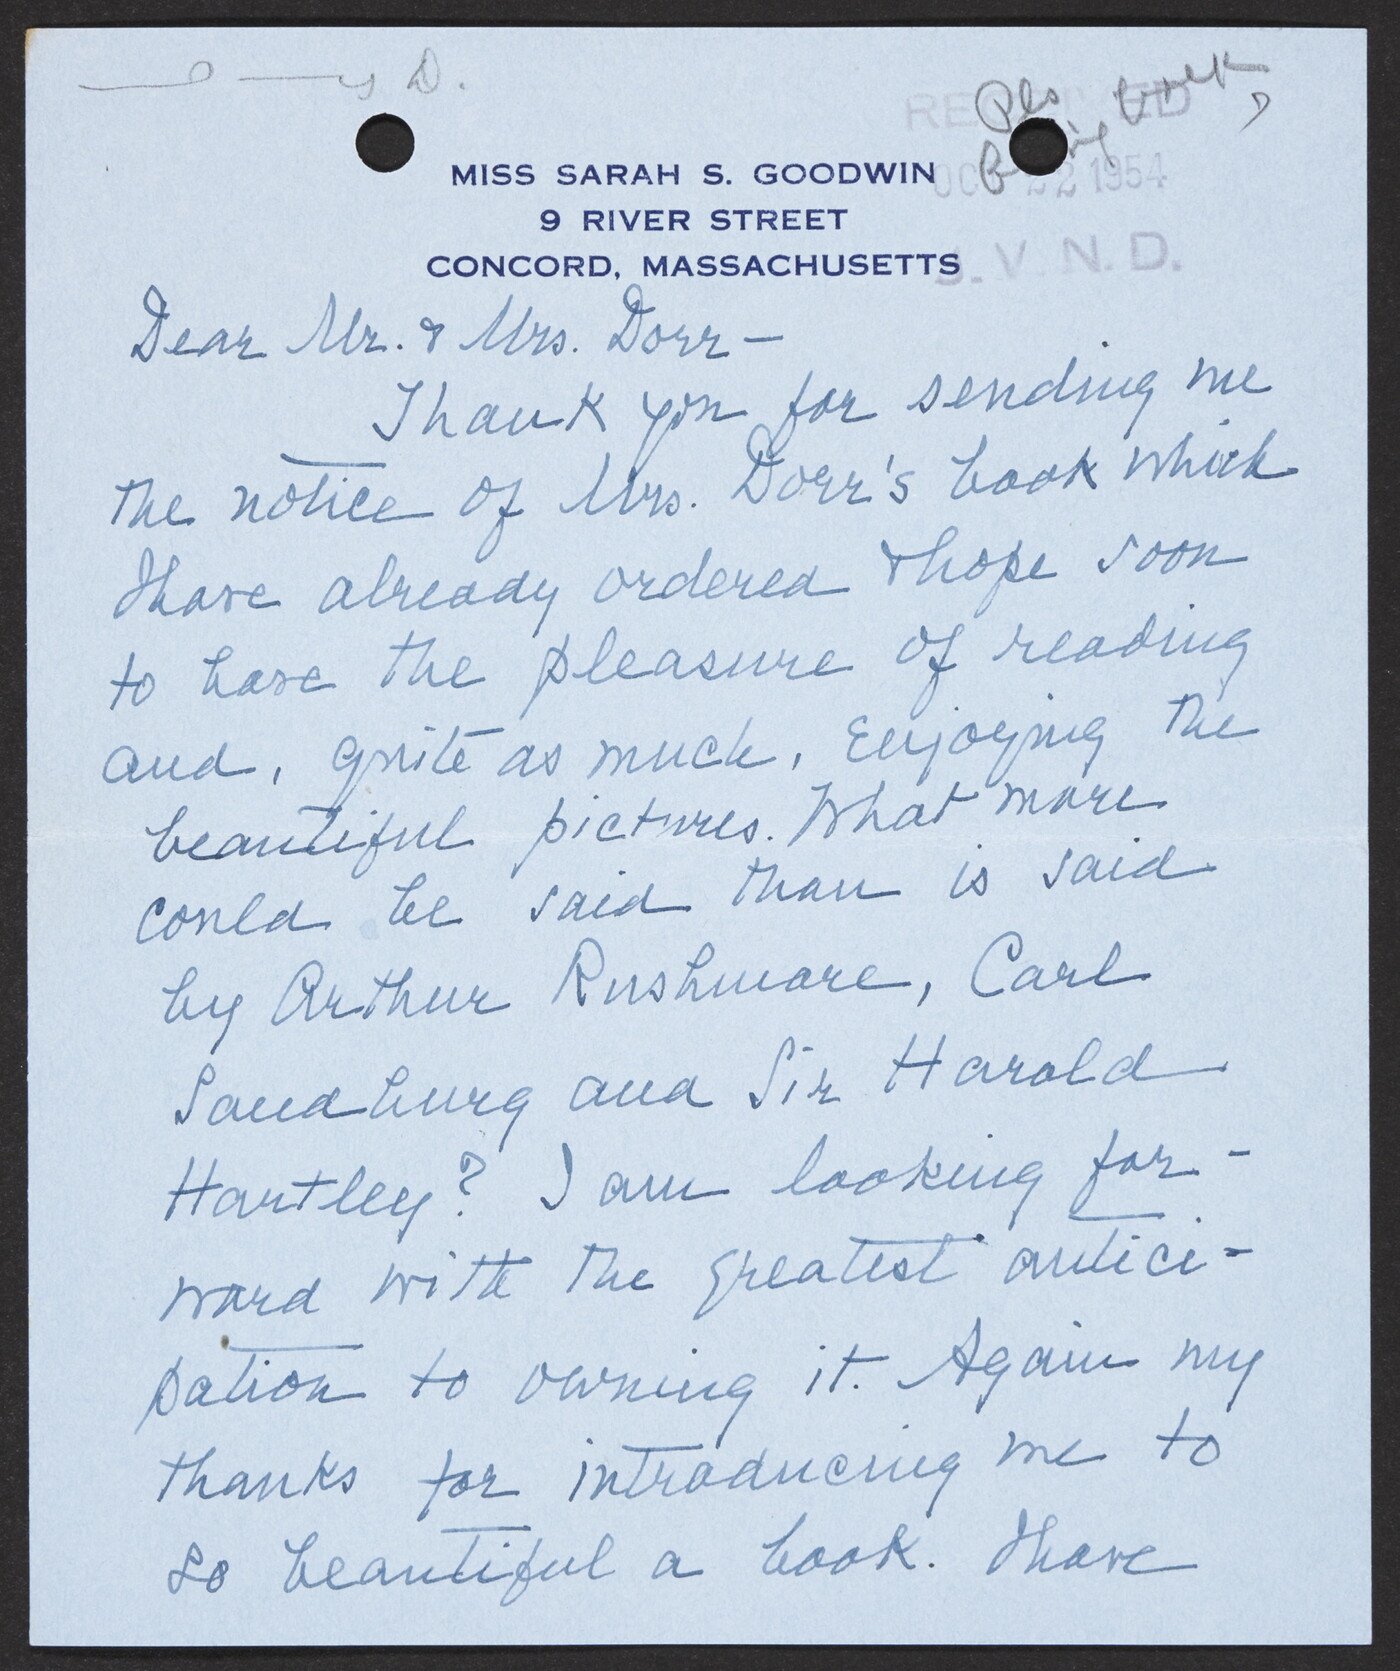 D.
Pls
RECEIVED
OCT 22 1954
J. V. N. D.
MISS SARAH S. GOODWIN
9 RIVER STREET
CONCORD, MASSACHUSETTS
Dear Mr. & Mrs. Dorr –
Thank you for sending me
the notice of Mrs. Dorr's book which
I have already ordered & hope soon
to have the pleasure of reading
and, quite as much, enjoying the
beautiful pictures. What more
could be said than is said
by Arthur Rushmore, Carl
Sandburg and Sir Harold
Hartley? I am looking for-
ward with the greatest antici-
pation to owning it. Again my
thanks for introducing me to
so beautiful a book. I have